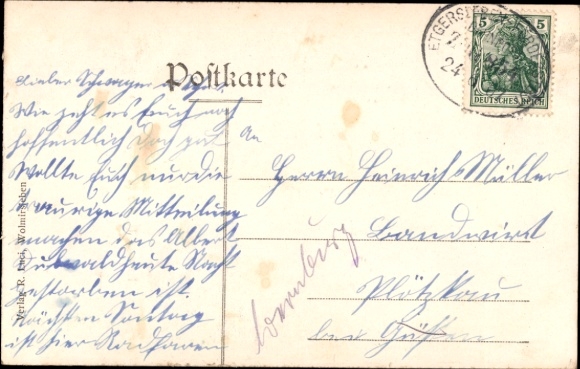 Postkarte
Lieber Schwager
Wie geht es Euch noch
hoffentlich doch gut
Wollte Euch nur die
traurige Mitteilung
machen das Albert
heute Nacht
gestorben ist.
Nächsten Sontag
ist hier Radfaren
An
Herrn Heinrich Müller
Landwirt
Plötzkau
bei Güsten
Bernburg
5 5
DEUTSCHES REICH
ETGERSLEBEN
24
Verlag R. Wolmirsleben